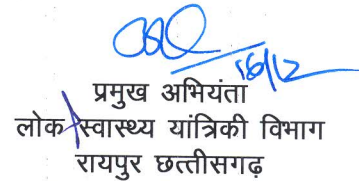 16/12
प्रमुख अभियंता
लोक स्वास्थ्य यांत्रिकी विभाग
रायपुर छत्तीसगढ़